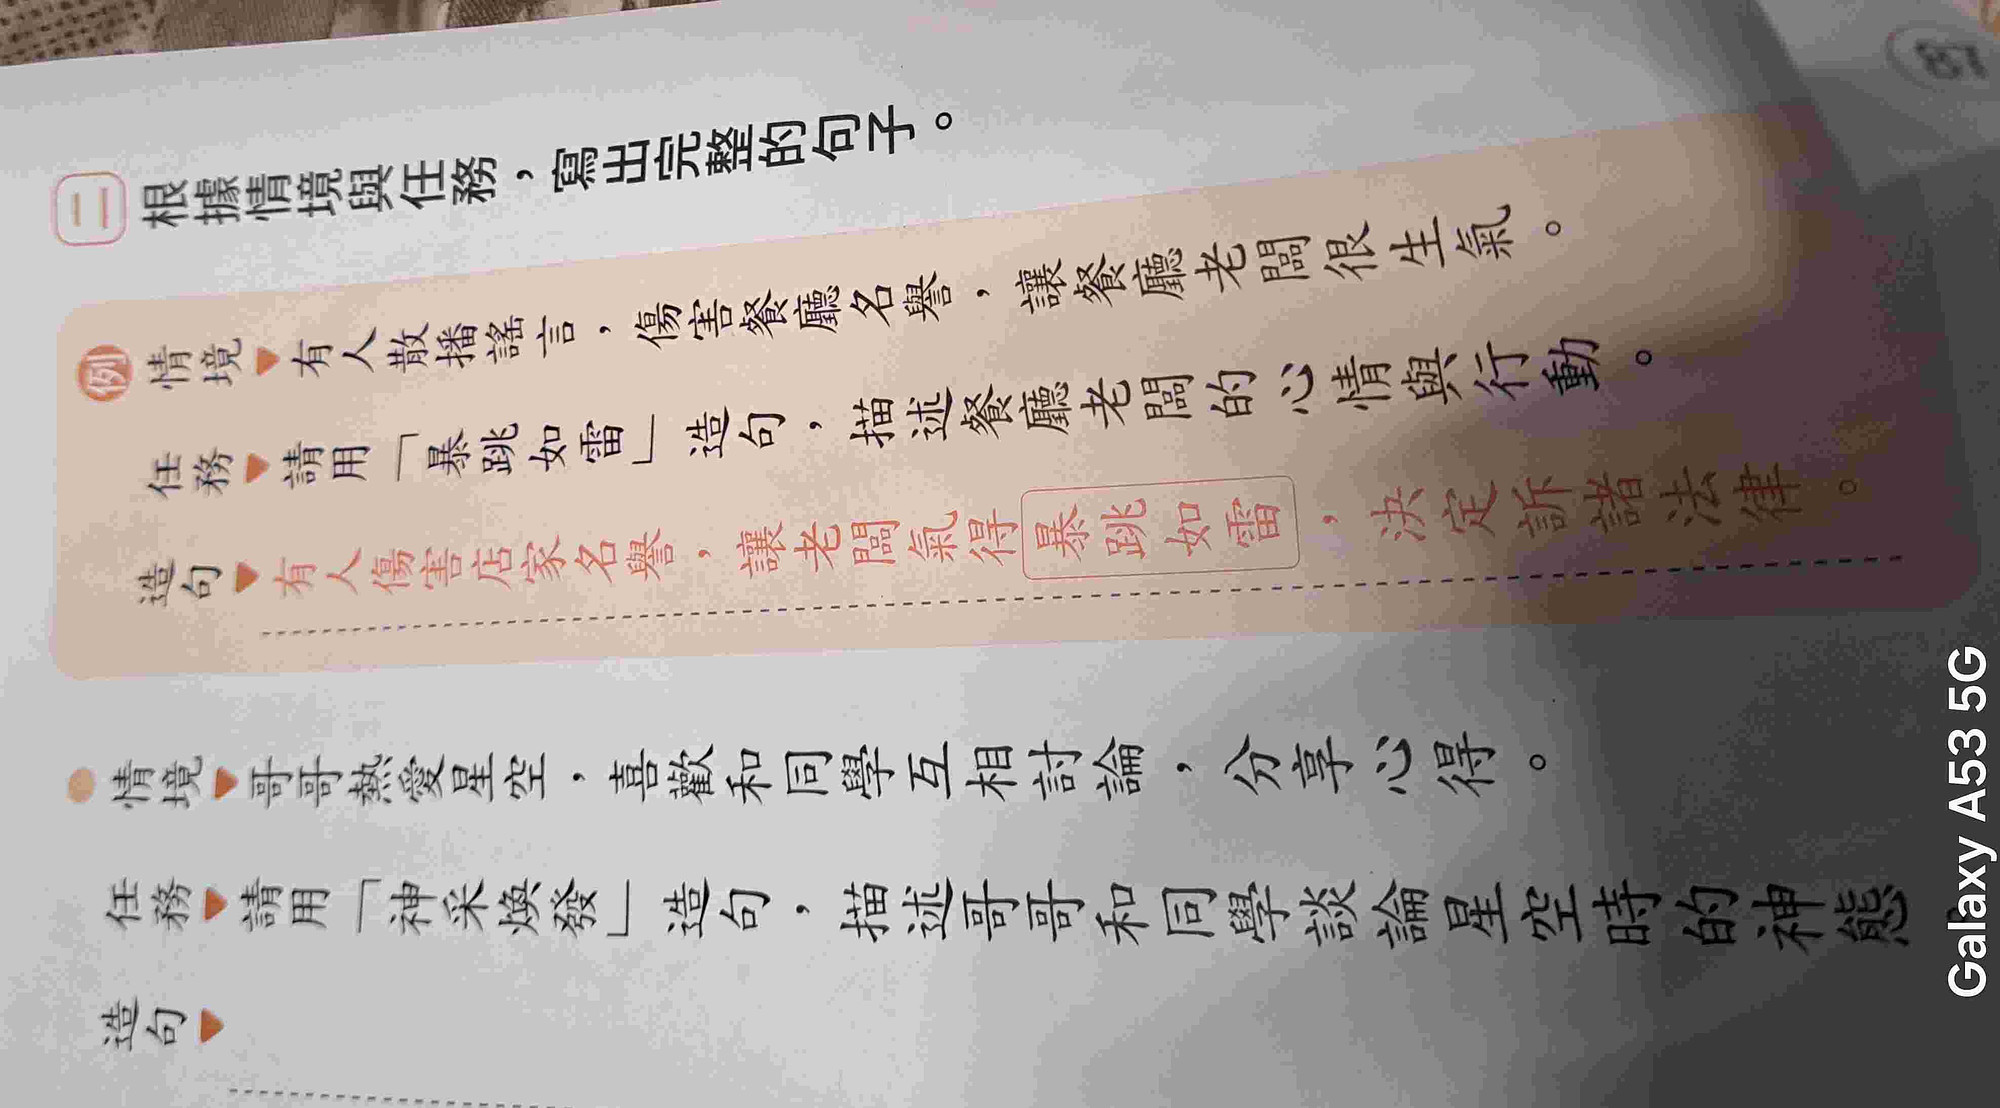 二 根據情境與任務，寫出完整的句子。
例 情境 有人散播謠言，傷害餐廳名譽，讓餐廳老闆很生氣。
任務 請用「暴跳如雷」造句，描述餐廳老闆的心情與行動。
造句 有人傷害店家名譽，讓老闆氣得暴跳如雷，決定訴諸法律。
情境 哥哥熱愛星空，喜歡和同學互相討論，分享心得。
任務 請用「神采煥發」造句，描述哥哥和同學談論星空時的神態
造句
Galaxy A53 5G